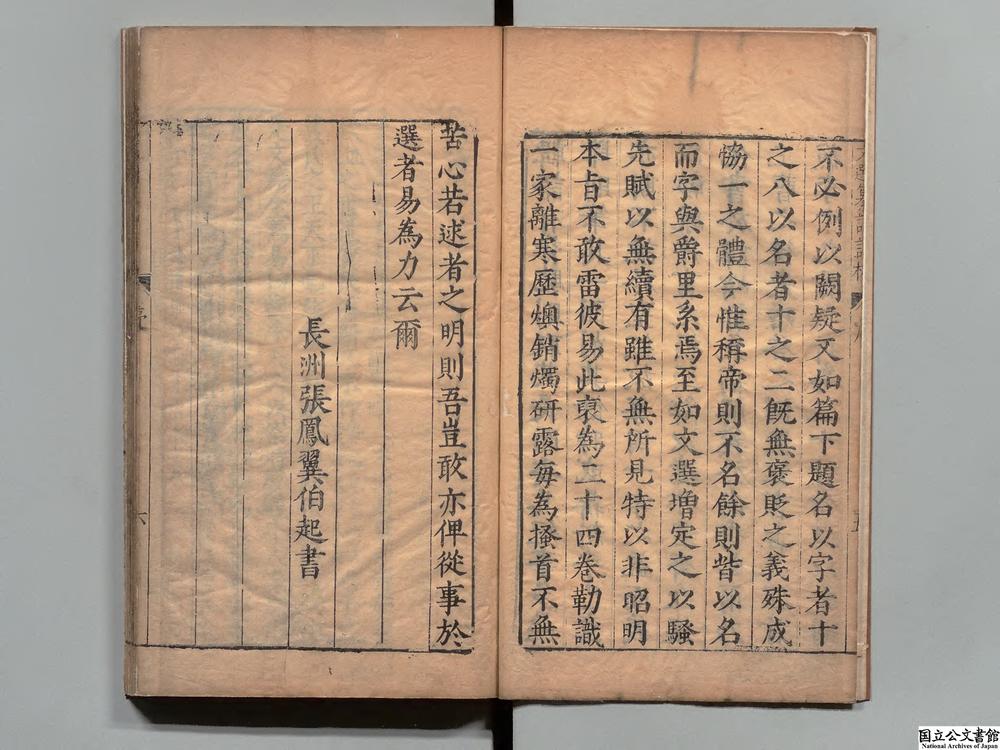 不必例以闕疑又如篇下題名以字者十
之八以名者十之二旣無褒貶之義殊成
恊一之體今惟稱帝則不名餘則皆以名
而字與爵里系焉至如文選增定之以騷
先賦以無續有雖不無所見特以非昭明
本旨不敢雷彼易此裒為二十四卷勒識
一家離寒歷燠銷燭硏露每為搔首不無
苦心若逑者之明則吾豈敢亦俾從事於
選者易為力云爾
長洲張鳳翼伯起書
六
国立公文書館
National Archives of Japan